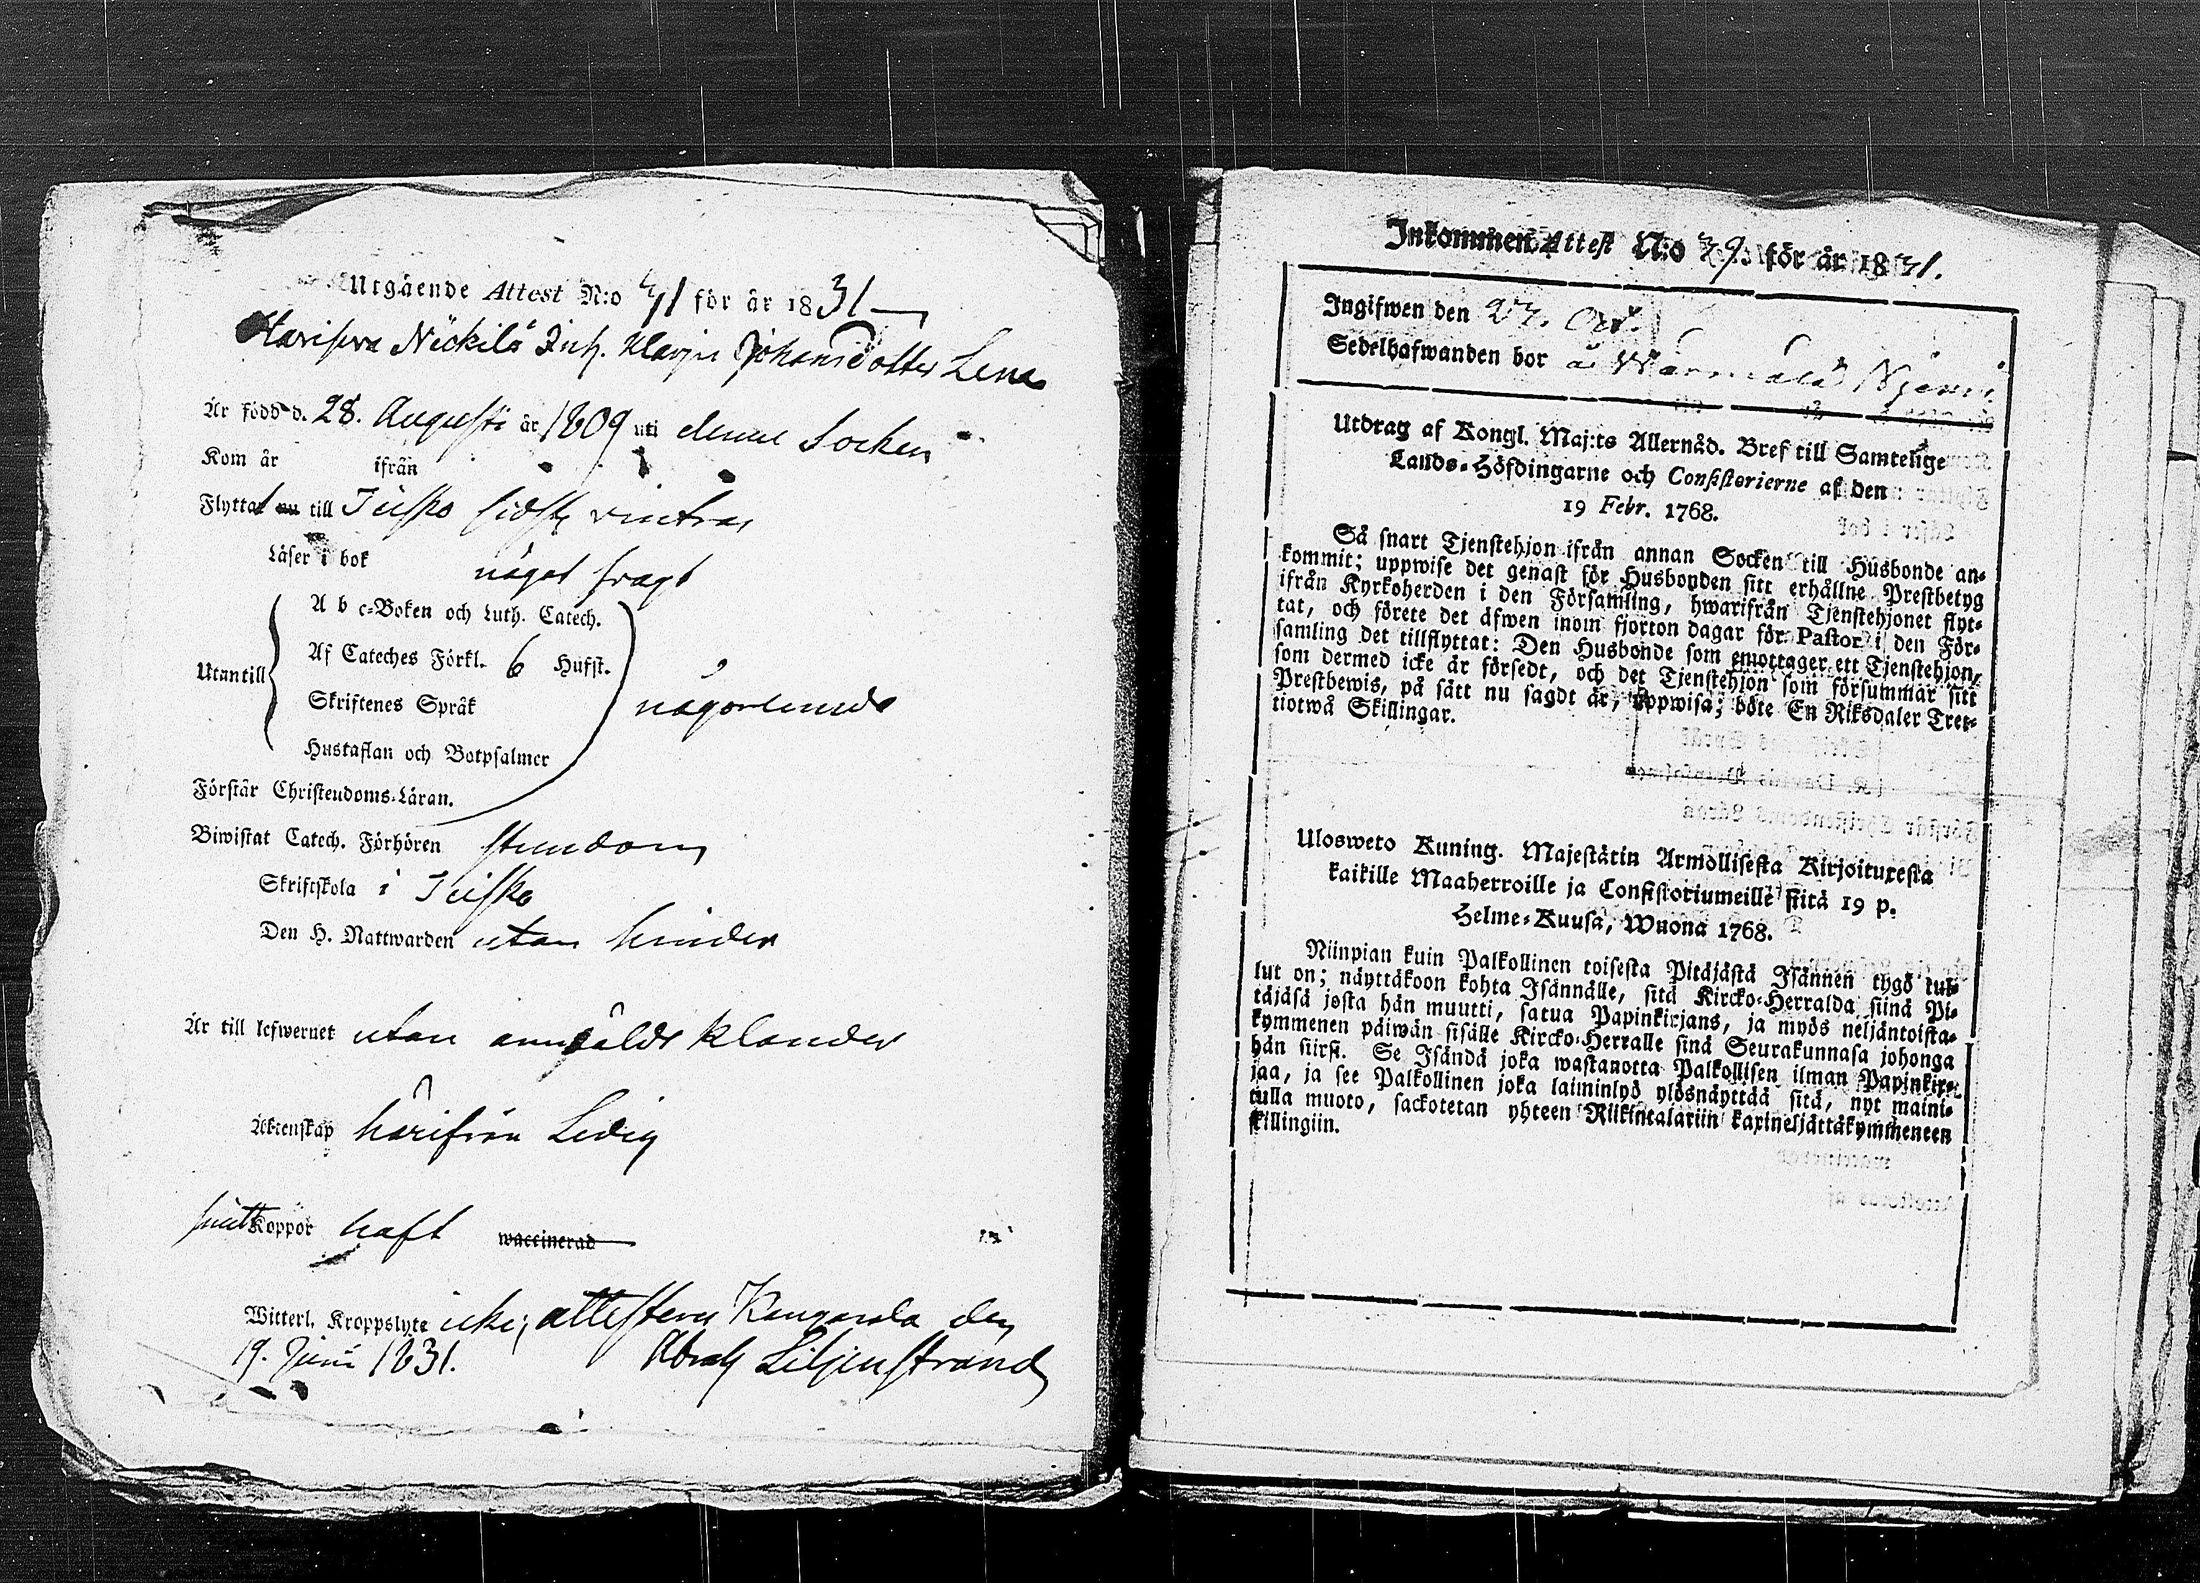 Utgående Attest N:o 71 för år 1831
Harisara Näckilä Inh. Marjis Johansdotter Lena
År född d. 28. Augusti år 1809 uti denne Socken
Kom år ifrån
Flyttat nu till Teisko sidste vinter
Läser i bok något svagt
A b c-Boken och Luth. Catech.
Af Cateches Förkl. 6 Hufst.
Utantill
Skriftenes Språk någorlunda
Hustaflan och Botpsalmer
Förstår Christendoms-Läran.
Biwistat Catech. Förhören stundom
Skriftskola i Teisko
Den H. Nattwarden utan hinder
Är till lefwernet utan anmäldt klander
Äktenskap härifrån Ledig
haft Koppor haft waccinerad
Witterl. Kroppslyte icke; attestera Kangasala den
19. Junii 1831. Abrah Liljenstrand
Inkommen Attest N:o 79 för år 1831.
Ingifwen den 27. Oct.
Sedelhafwanden bor å
Utdrag af Kongl. Maj:ts Allernåd. Bref till Samtelige
Lands-Höfdingarne och Consistorierne af den
19 Febr. 1768.
Så snart Tjenstehjon ifrån annan Socken till Husbonde an-
kommit; uppwise det genast för Husbonden sitt erhållne Prestbetyg
ifrån Kyrkoherden i den Församling, hwarifrån Tjenstehjonet flyt-
tat, och förete det äfwen inom fjorton dagar för Pastor i den För-
samling det tillflyttat: Den Husbonde som emottager ett Tjenstehjon,
som dermed icke är försedt, och det Tjenstehjon som försummar sitt
Prestbewis, på sätt nu sagdt är, uppwisa; böte En Riksdaler Tret-
tiotwå Skillingar.
Ulosweto Kuning. Majestätin Armollisesta Kirjoituxesta
kaikille Maaherroille ja Consistoriumeille siitä 19 p.
Helme-Kuusa, Wuona 1768.
Niinpian kuin Palkollinen toisesta Pitäjästä Isännen tygö tul-
lut on; näyttäkoon kohta Isännälle, sitä Kircko-Herralda siinä Pi-
täjäsä josta hän muutti, satua Papinkirjans, ja myös neljäntoista-
kymmenen päiwän sisälle Kircko-Herralle sinä Seurakunnasa johonga
hän siirsi. Se Isändä joka wastanotta Palkollisen ilman Papinkir-
jaa, ja see Palkollinen joka laiminlyö ylösnäyttää sitä, nyt maini-
tulla muoto, sackotetan yhteen Riikintalariin kaxineljättäkymmeneen
killingiin.